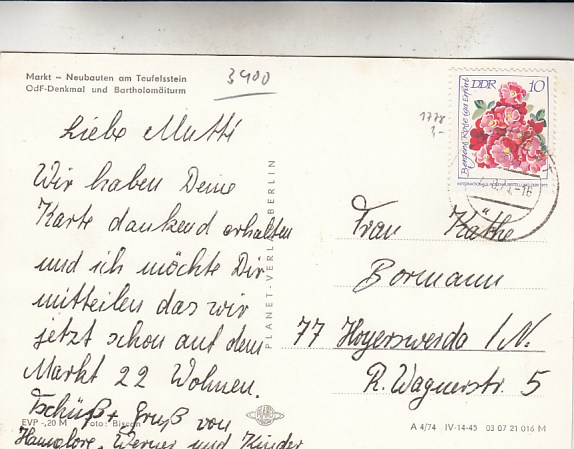 Markt – Neubauten am Teufelsstein
OdF-Denkmal und Bartholomäiturm
3400
DDR 10
Bergers Rose iga Erfurt
Liebe Mutti
Wir haben Deine
Karte dankend erhalten
und ich möchte Dir
mitteilen das wir
jetzt schon auf dem
Markt 22 Wohnen.
Tschüß + Gruß von
Hannlore, Werner und Kinder
PLANET-VERLAG BERLIN
Frau Käthe
Bormann
77 Hoyerswerda / N.
R. Wagnerstr. 5
EVP -,20 M Foto: Biscan
A 4/74 IV-14-45 03 07 21 016 M